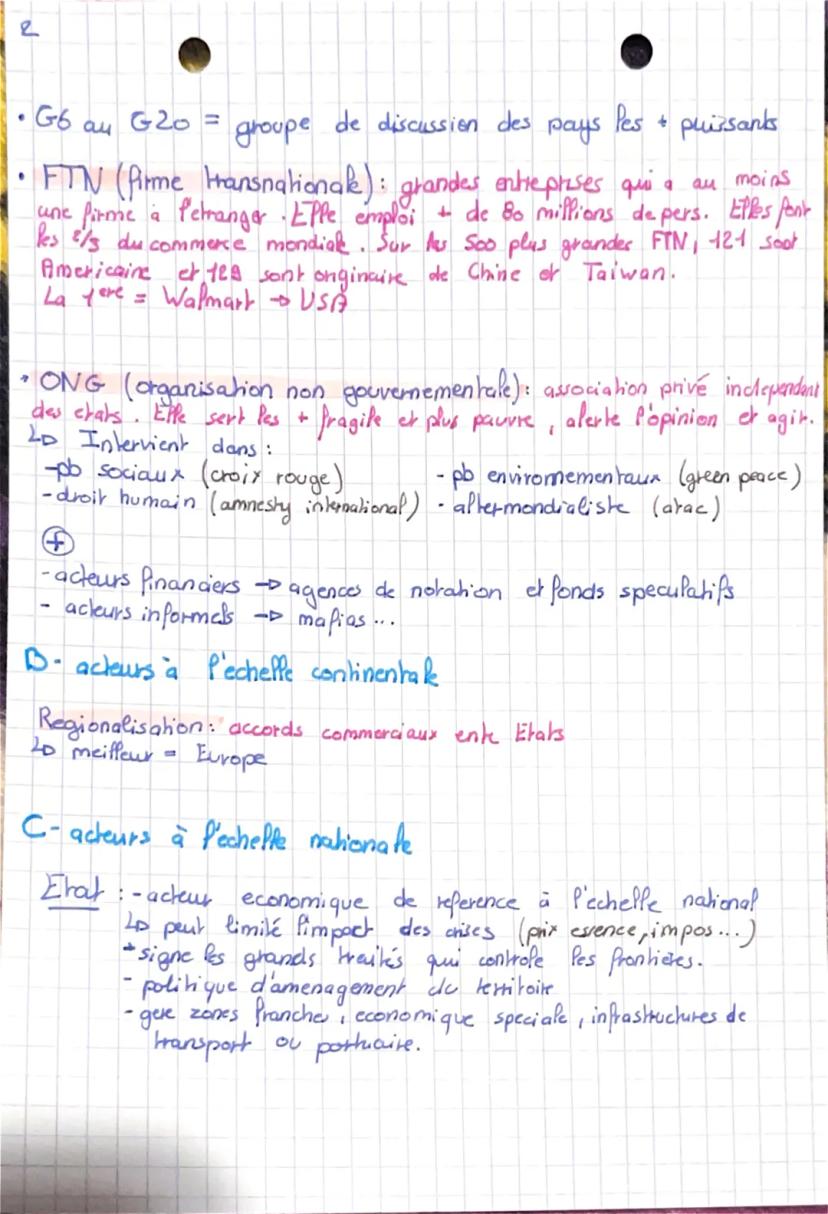 2
• G6 au G20 = groupe de discussion des pays les + puissants
• FTN (firme transnationale) : grandes entreprises qui a au moins
une firme à l'etranger. Elle emploi + de 80 millions de pers. Elles font
les 2/3 du commerce mondiale. Sur les 500 plus grandes FTN, 121 sont
Americaine et 129 sont originaire de Chine et Taiwan.
La 1ere = Walmart → USA
• ONG (organisation non gouvernementale) : association privé independant
des etats. Elle sert les + fragile et plus pauvre, alerte l'opinion et agir.
↳ Intervient dans :
- pb sociaux (croix rouge) - pb enviromementaux (green peace)
- droit humain (amnesty international) - altermondialiste (atac)
+
- acteurs financiers → agences de notation et fonds speculatifs
- acteurs informels → mafias...
B- acteurs à l'echelle continentale
Regionalisation : accords commerciaux ente Etats
↳ meilleur = Europe
C- acteurs à l'echelle nationale
Etat : - acteur economique de reference à l'echelle national
↳ peut limité l'impact des crises (prix essence, impos...)
- signe les grands traités qui controle les frontières.
- politique d'amenagement du territoire
- gere zones franche, economique speciale, infrastructures de
transport ou portuaire.